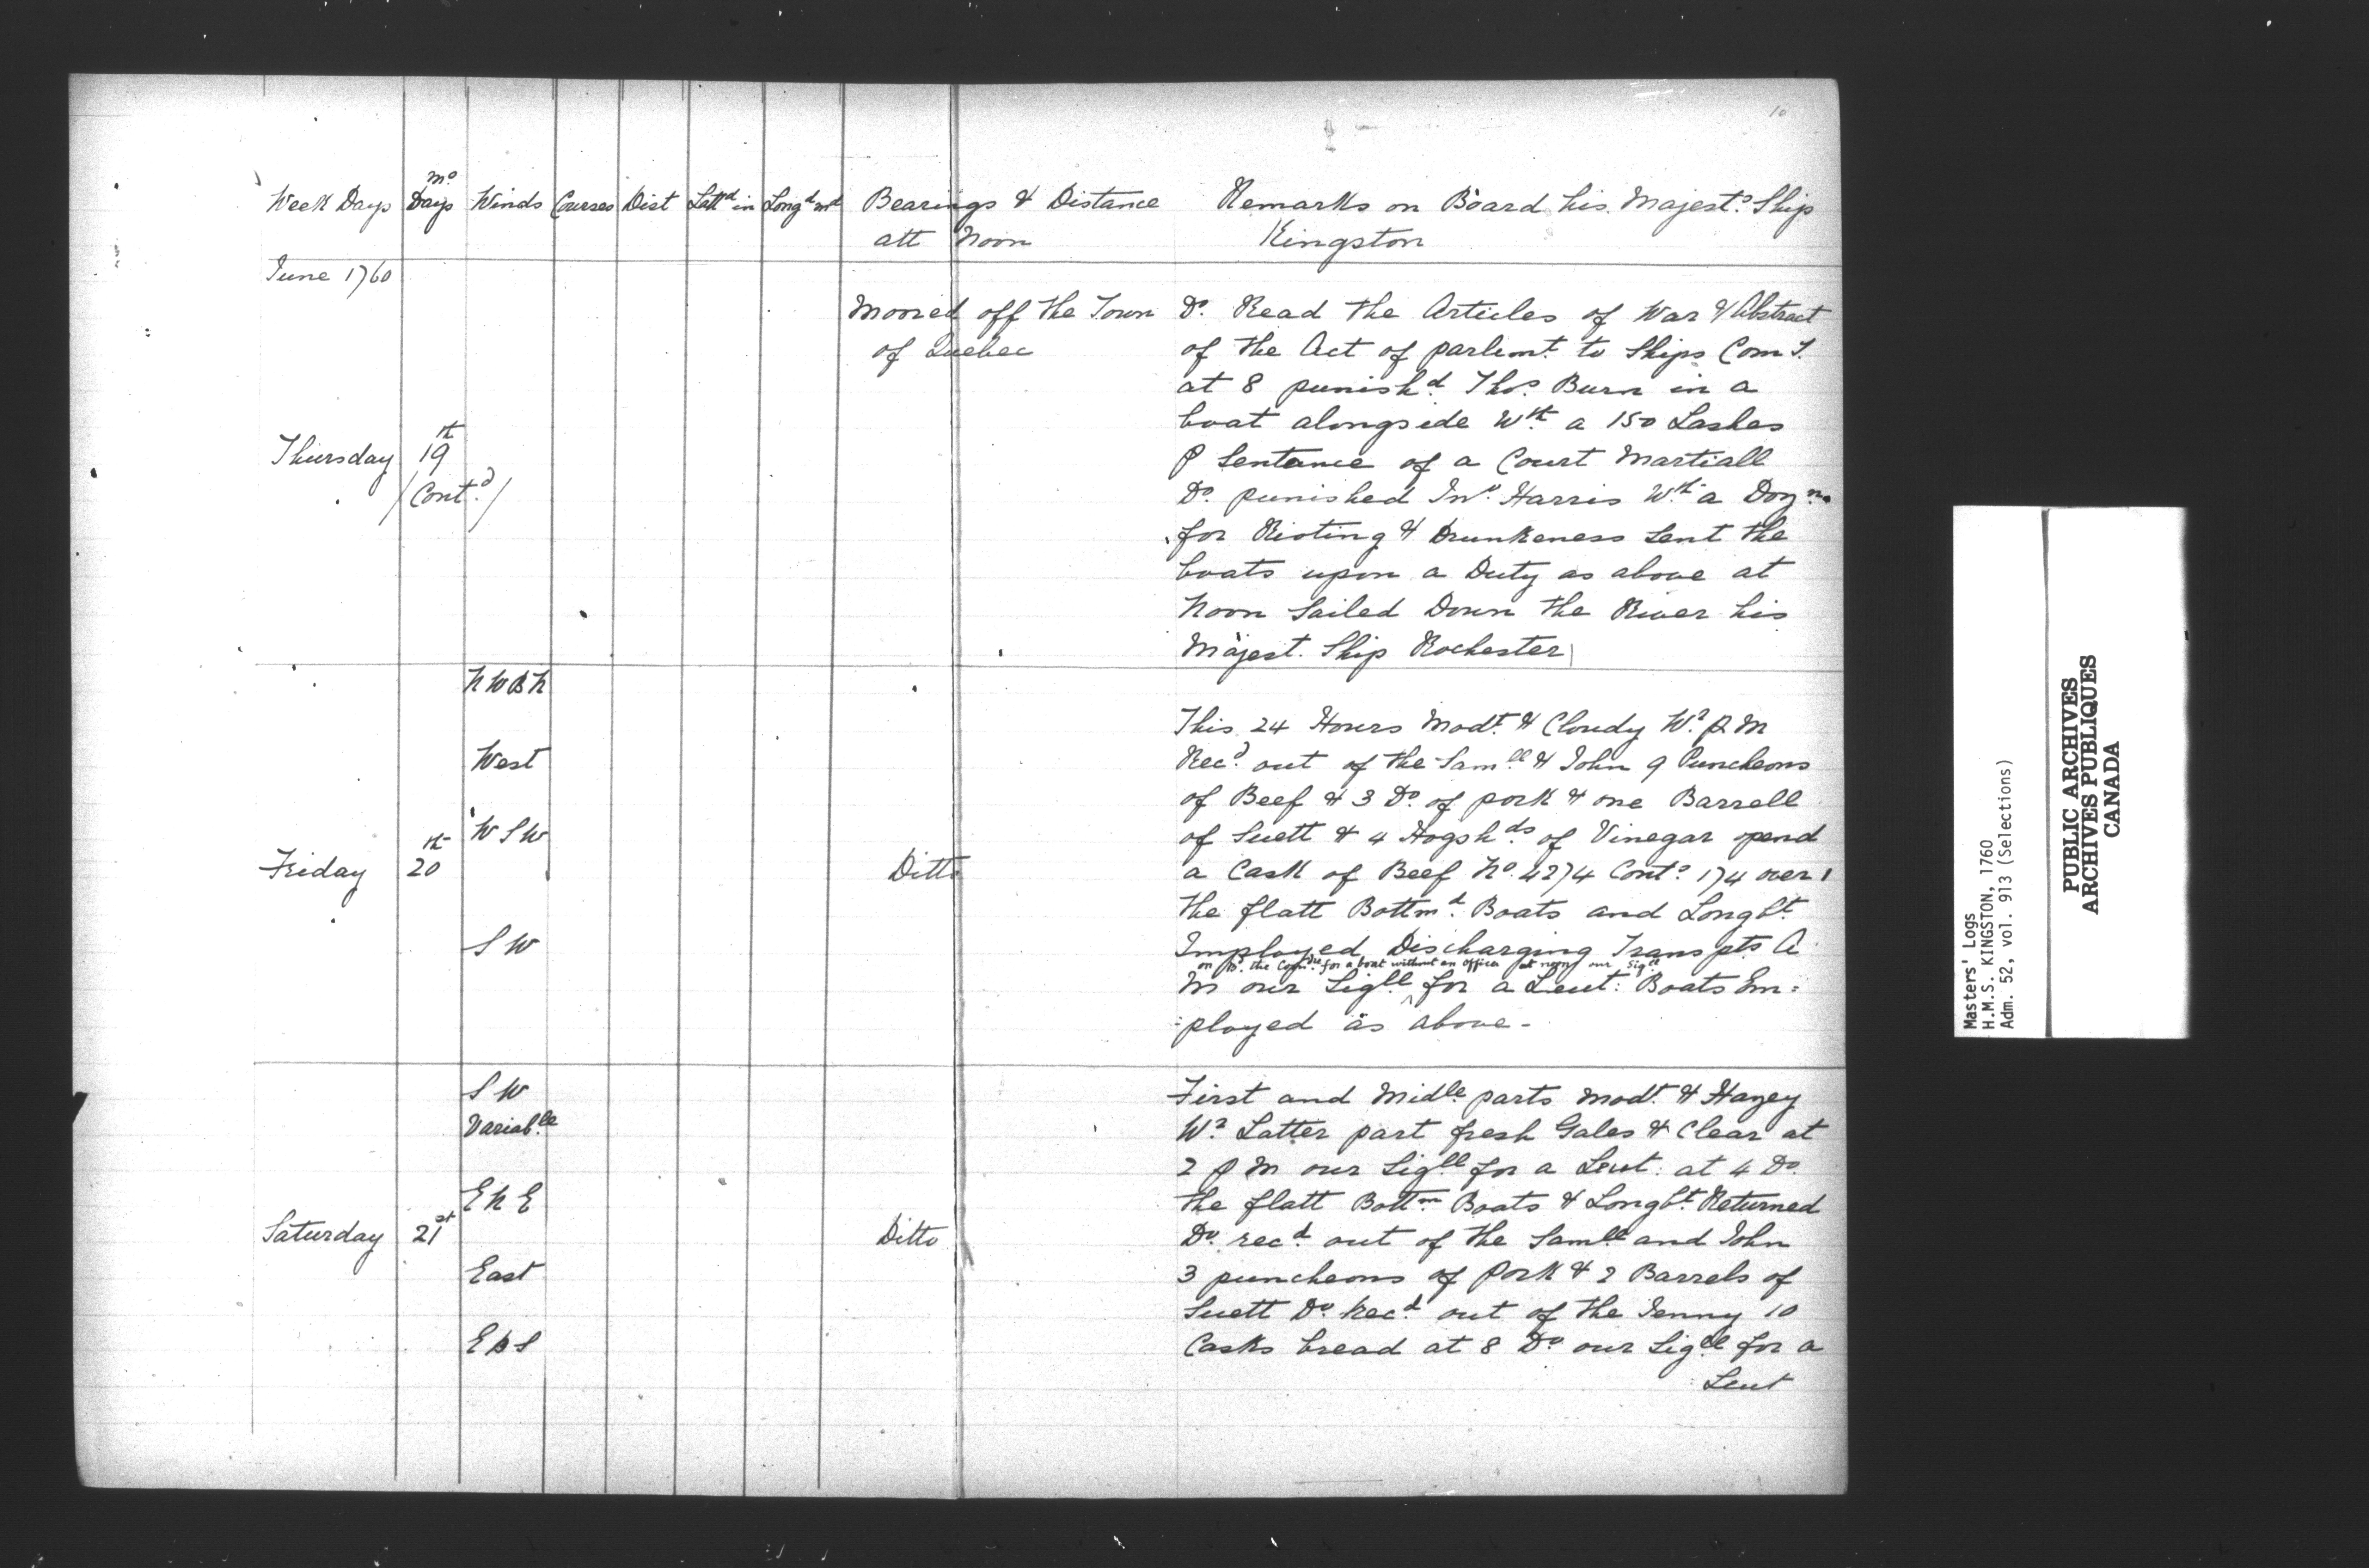 10
Week Days Mo Days Winds Courses Dist Lattd in Longd md Bearings & Distance att Noon Remarks on Board his Majests Ship Kingston
June 1760
Moored off the Town
of Quebec
Thursday 19th
(Contd)
Do. Read the Articles of War & Abstract
of the Act of parlemt. to Ships Comy.
at 8 punishd. Thos. Burn in a
boat alongside Wth a 150 Lashes
P Sentance of a Court Martiall
Do. punished Jno. Harris Wth a Dozn.
for Rioting & Drunkeness Sent the
boats upon a Duty as above at
Noon Sailed Down the River his
Majest. Ship Rochester
Friday 20th
NWBN
West
WSW
SW
Ditto
This 24 Hours Modt. & Cloudy Wr. P M
Recd. out of the Samll & John 9 Puncheons
of Beef & 3 Do. of pork & one Barrell
of Suett & 4 Hogshds. of Vinegar opend
a Cask of Beef No. 4274 Conto. 174 over 1
the flatt Bottmd. Boats and Longbt.
Imployed Discharging Transpts. A
on Bd. the Comdre for a boat without an officer at noon our Sigll
M our Sigll for a Leut: Boats Em:
:ployed as above -
Saturday 21st
SW
Variable
ENE
East
EBS
Ditto
First and Midle parts Modt. & Hazey
Wr. Latter part fresh Gales & Clear at
2 P M our Sigll for a Leut: at 4 Do.
the flatt Bottm. Boats & Longbt. Returned
Do. recd. out of the Samll and John
3 puncheons of Pork & 2 Barrels of
Suett Do. Recd. out of the Jenny 10
Casks bread at 8 Do. our Sigll for a
Leut
Masters' Logs
H.M.S. KINGSTON, 1760
Adm. 52, vol. 913 (Selections)
PUBLIC ARCHIVES
ARCHIVES PUBLIQUES
CANADA